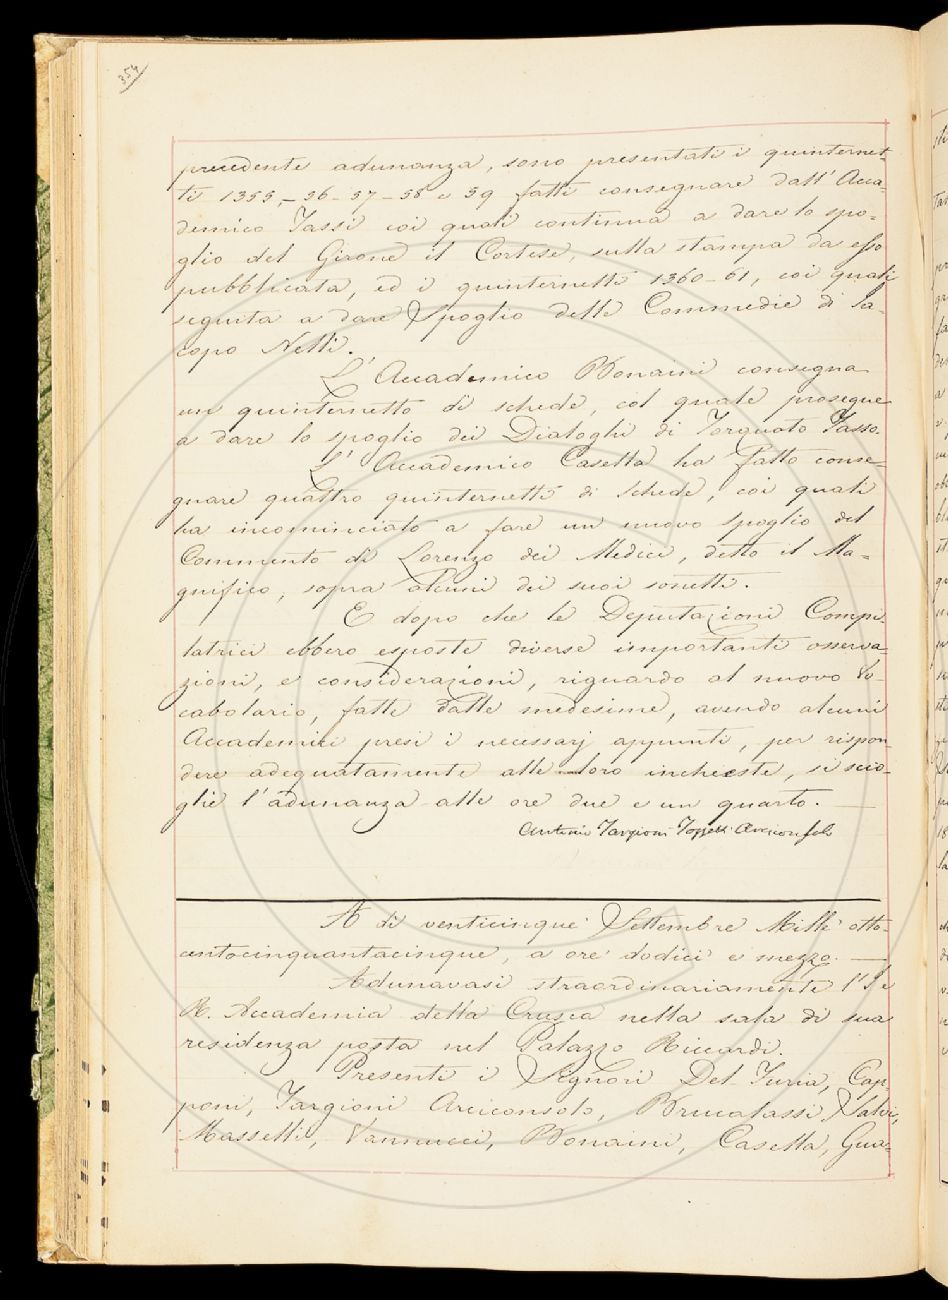 354
precedente adunanza, sono presentati i quinternet-
ti 1355_56_57_58 e 59 fatti consegnare dall' Acca-
demico Tassi coi quali continua a dare lo spo-
glio del Girone il Cortese, sulla stampa da esso
pubblicata, ed i quinternetti 1360_61, coi quali
seguita a dare Spoglio delle Commedie di Ja-
copo Nelli.
L' Accademico Bonaini consegna
un quinternetto di schede, col quale prosegue
a dare lo spoglio dei Dialoghi di Torquato Tasso.
L' Accademico Casella ha fatto conse-
gnare quattro quinternetti di schede, coi quali
ha incominciato a fare un nuovo spoglio del
Commento di Lorenzo dei Medici, detto il Ma-
gnifico, sopra alcuni dei suoi sonetti.
E dopo che le Deputazioni Compi-
latrici ebbero esposte diverse importanti osserva-
zioni, e considerazioni, riguardo al nuovo Vo-
cabolario, fatte dalle medesime, avendo alcuni
Accademici presi i necessarj appunti, per rispon-
dere adeguatamente alle loro inchieste, si scio-
glie l'adunanza alle ore due e un quarto.
Antonio Targioni Tozzetti Arciconsolo
A di venticinque Settembre Mille otto-
centocinquantacinque, a ore dodici e mezzo.
Adunavasi straordinariamente l' I. e
R. Accademia della Crusca nella sala di sua
residenza posta nel Palazzo Riccardi.
Presenti i Signori Del Furia, Cap-
poni, Targioni Arciconsolo, Brucalassi, Salvi,
Masselli, Vannucci, Bonaini, Casella, Gua-